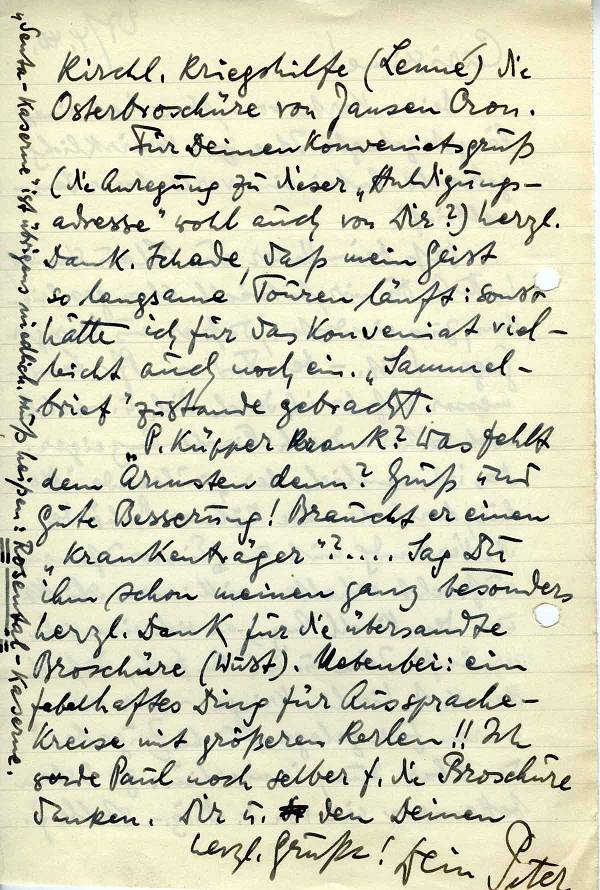 Kirchl. Kriegshilfe (Lenné) die
Osterbroschüre von Jansen Cron.
Für Deinen Konveniatsgruß
(die Anregung zu dieser „Huldigungs-
adresse" wohl auch von Dir?) herzl.
Dank. Schade, daß mein Geist
so langsame Touren läuft: sonst
hätte ich für das Konveniat viel-
leicht auch noch ein. „Sammel-
brief" zustande gebracht.
P. Küpper krank? Was fehlt
dem Ärmsten denn? Gruß und
gute Besserung! Braucht er einen
„Krankenträger"?.... Sag Du
ihm schon meinen ganz besonders
herzl. Dank für die übersandte
Broschüre (Wust). Nebenbei: ein
fabelhaftes Ding für Aussprache-
Kreise mit größeren Kerlen!! Ich
werde Paul noch selber f. die Broschüre
danken. Dir u. den Deinen
herzl. Grüße! Dein Peter
„Senta-Kaserne" ist übrigens niedlich. Muß heißen: Rosental-Kaserne.